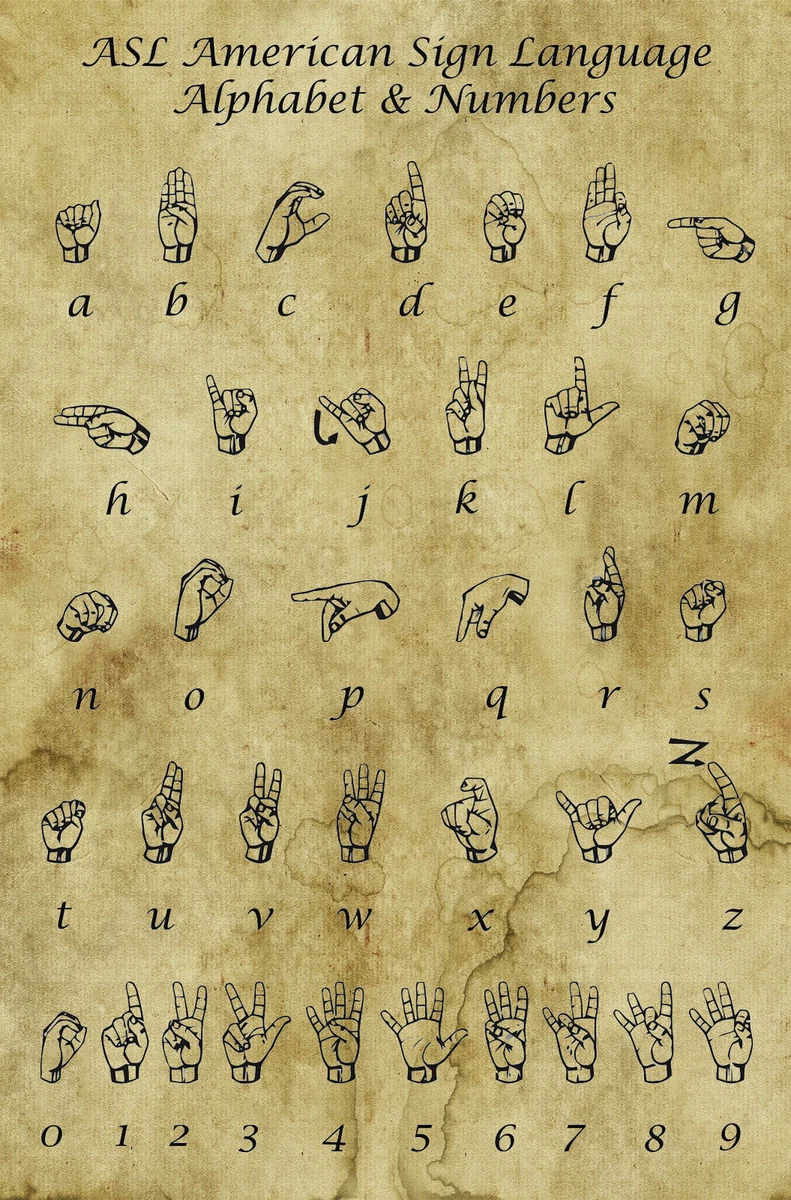 ASL American Sign Language
Alphabet & Numbers
a b c d e f g
h i j k l m
n o p q r s
Z
t u v w x y z
0 1 2 3 4 5 6 7 8 9